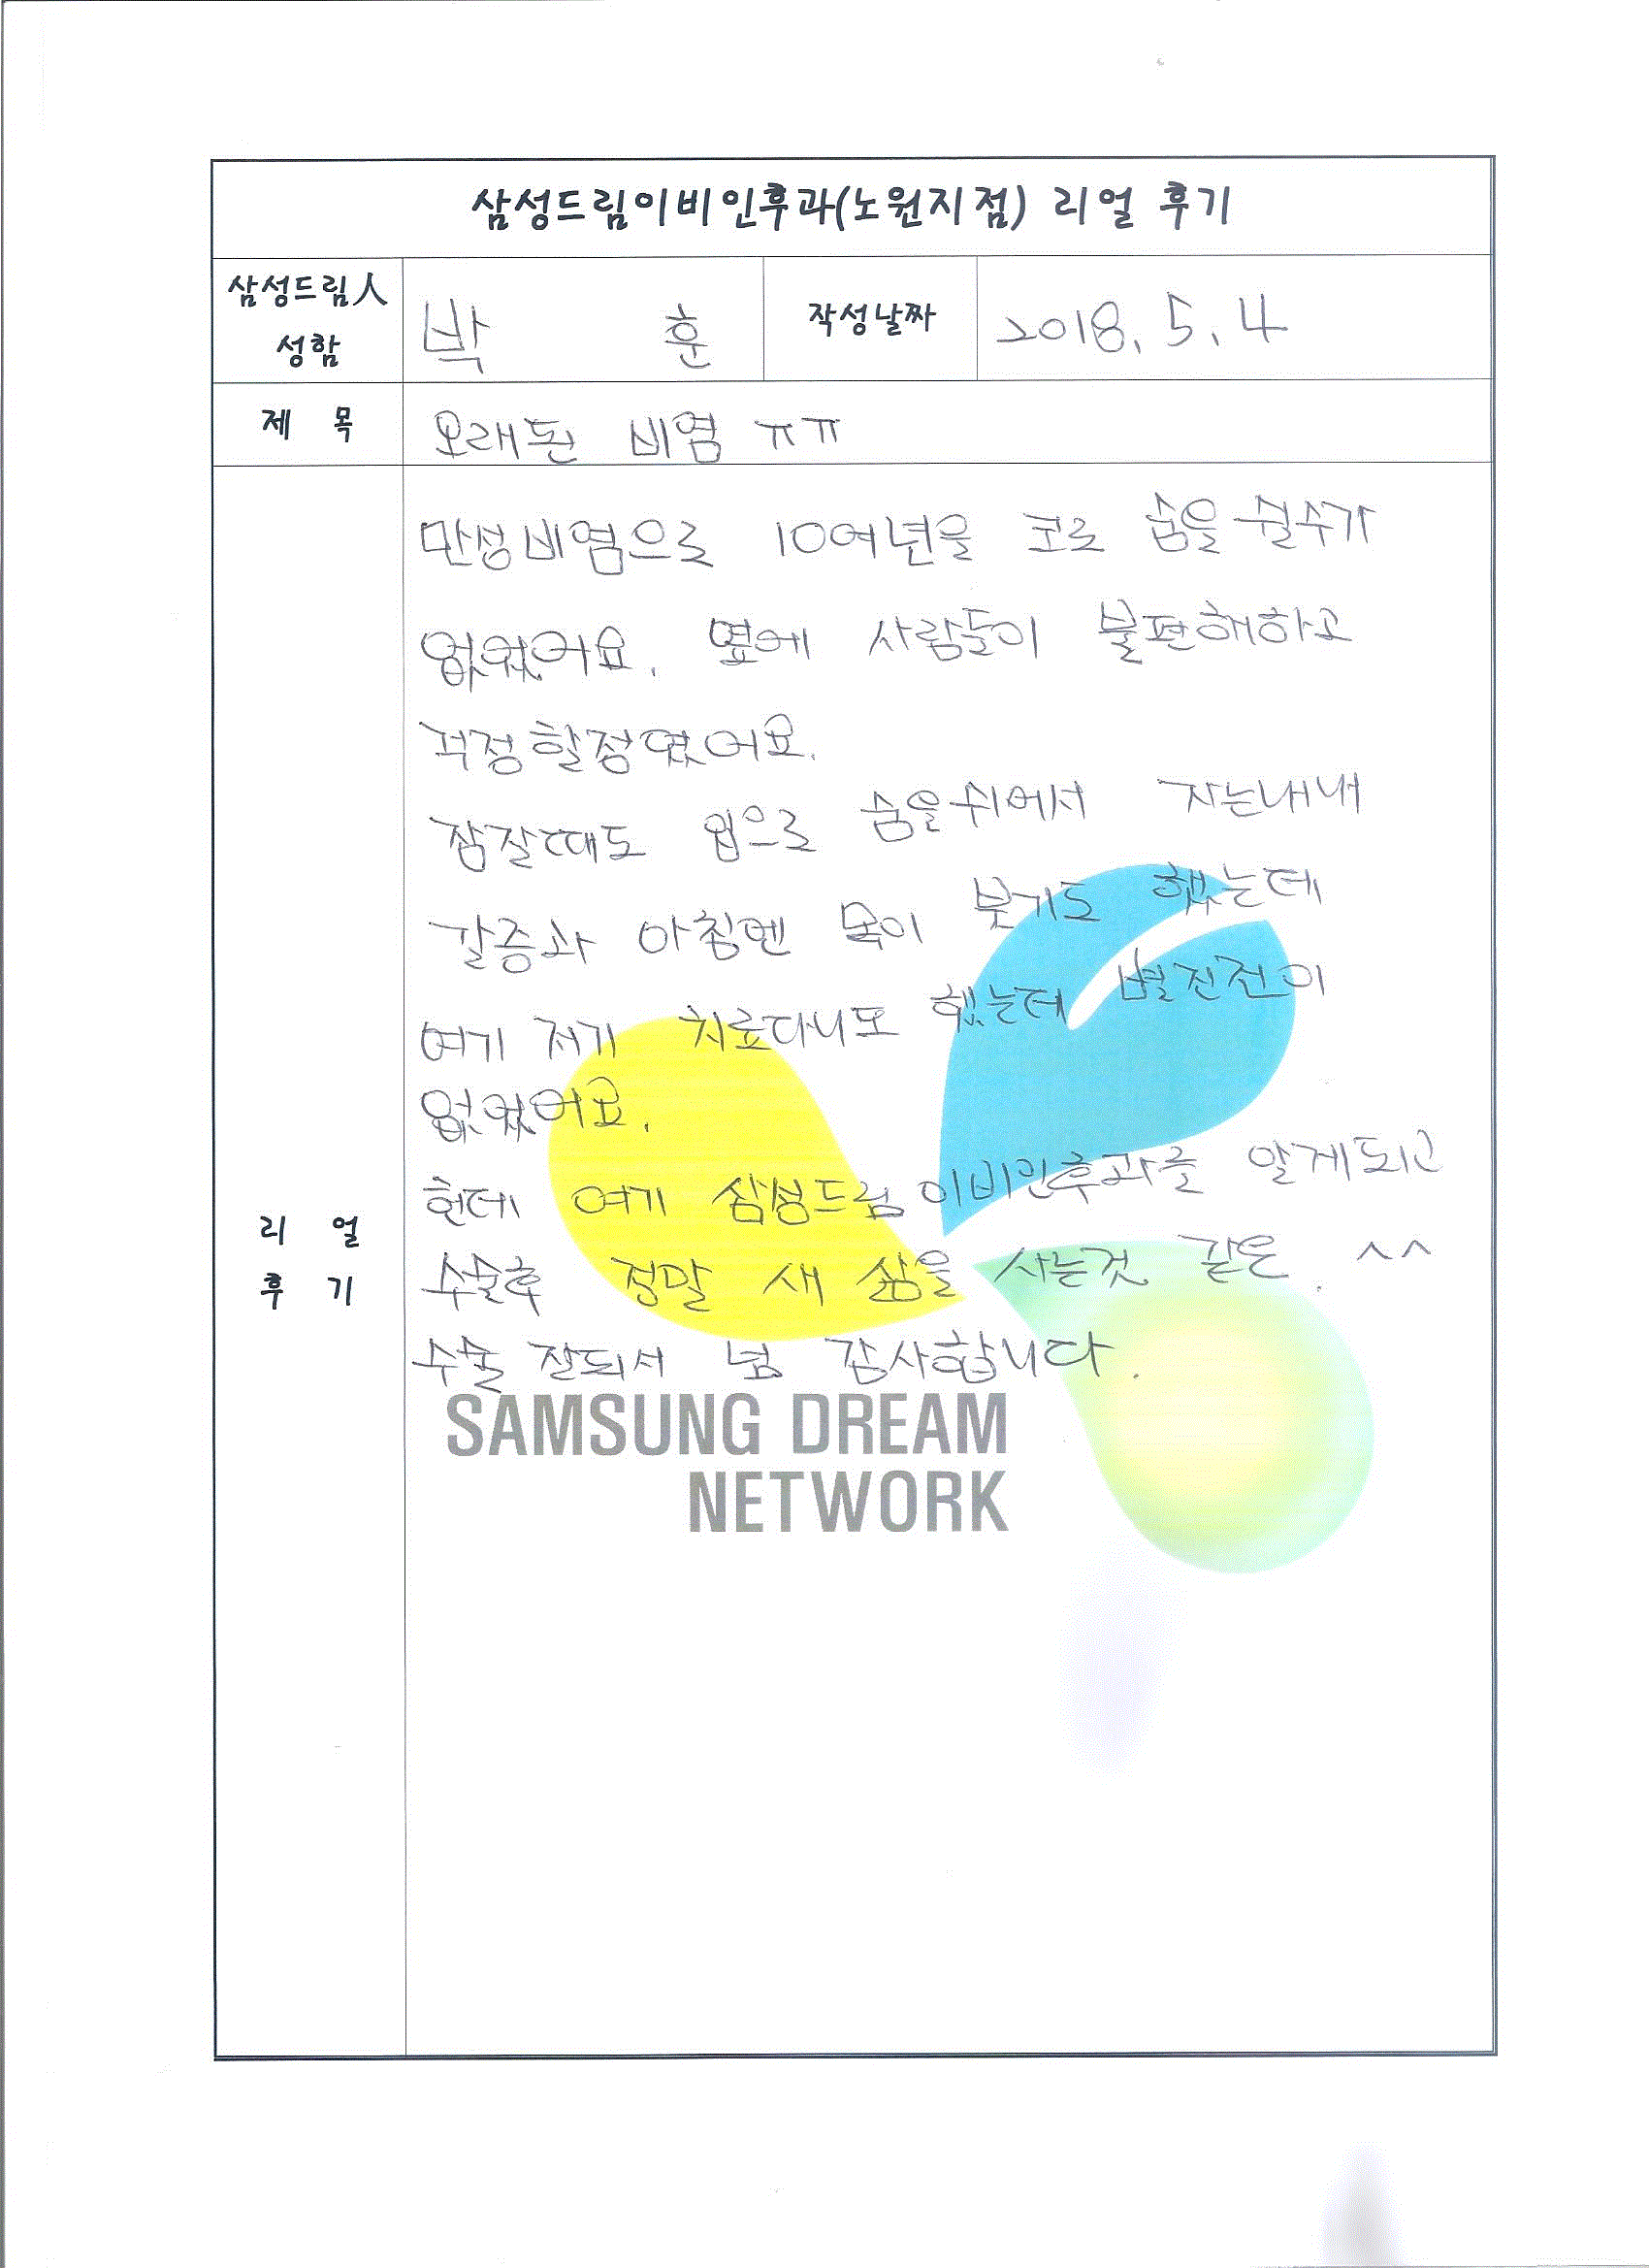 삼성드림이비인후과(노원지점) 리얼 후기
삼성드림人
성함
박 훈
작성날짜
2018. 5. 4
제 목
오래된 비염 ㅠㅠ
만성비염으로 10여년을 코로 숨을 쉴수가
없었어요. 옆에 사람들이 불편해하고
걱정할정였어요.
잠잘때도 입으로 숨을쉬에서 자는내내
갈증과 아침엔 목이 붓기도 했는데
여기 저기 치료다니도 했는데 별진전이
없었어요.
헌데 여기 삼성드림이비인후과를 알게되고
수술후 정말 새 삶을 사는것 같은. ^^
수술 잘되서 넘 감사합니다.
리 얼
후 기
SAMSUNG DREAM
NETWORK